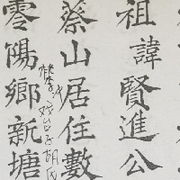 祖諱賢進公
蔡山居住數
零陽鄉新塘